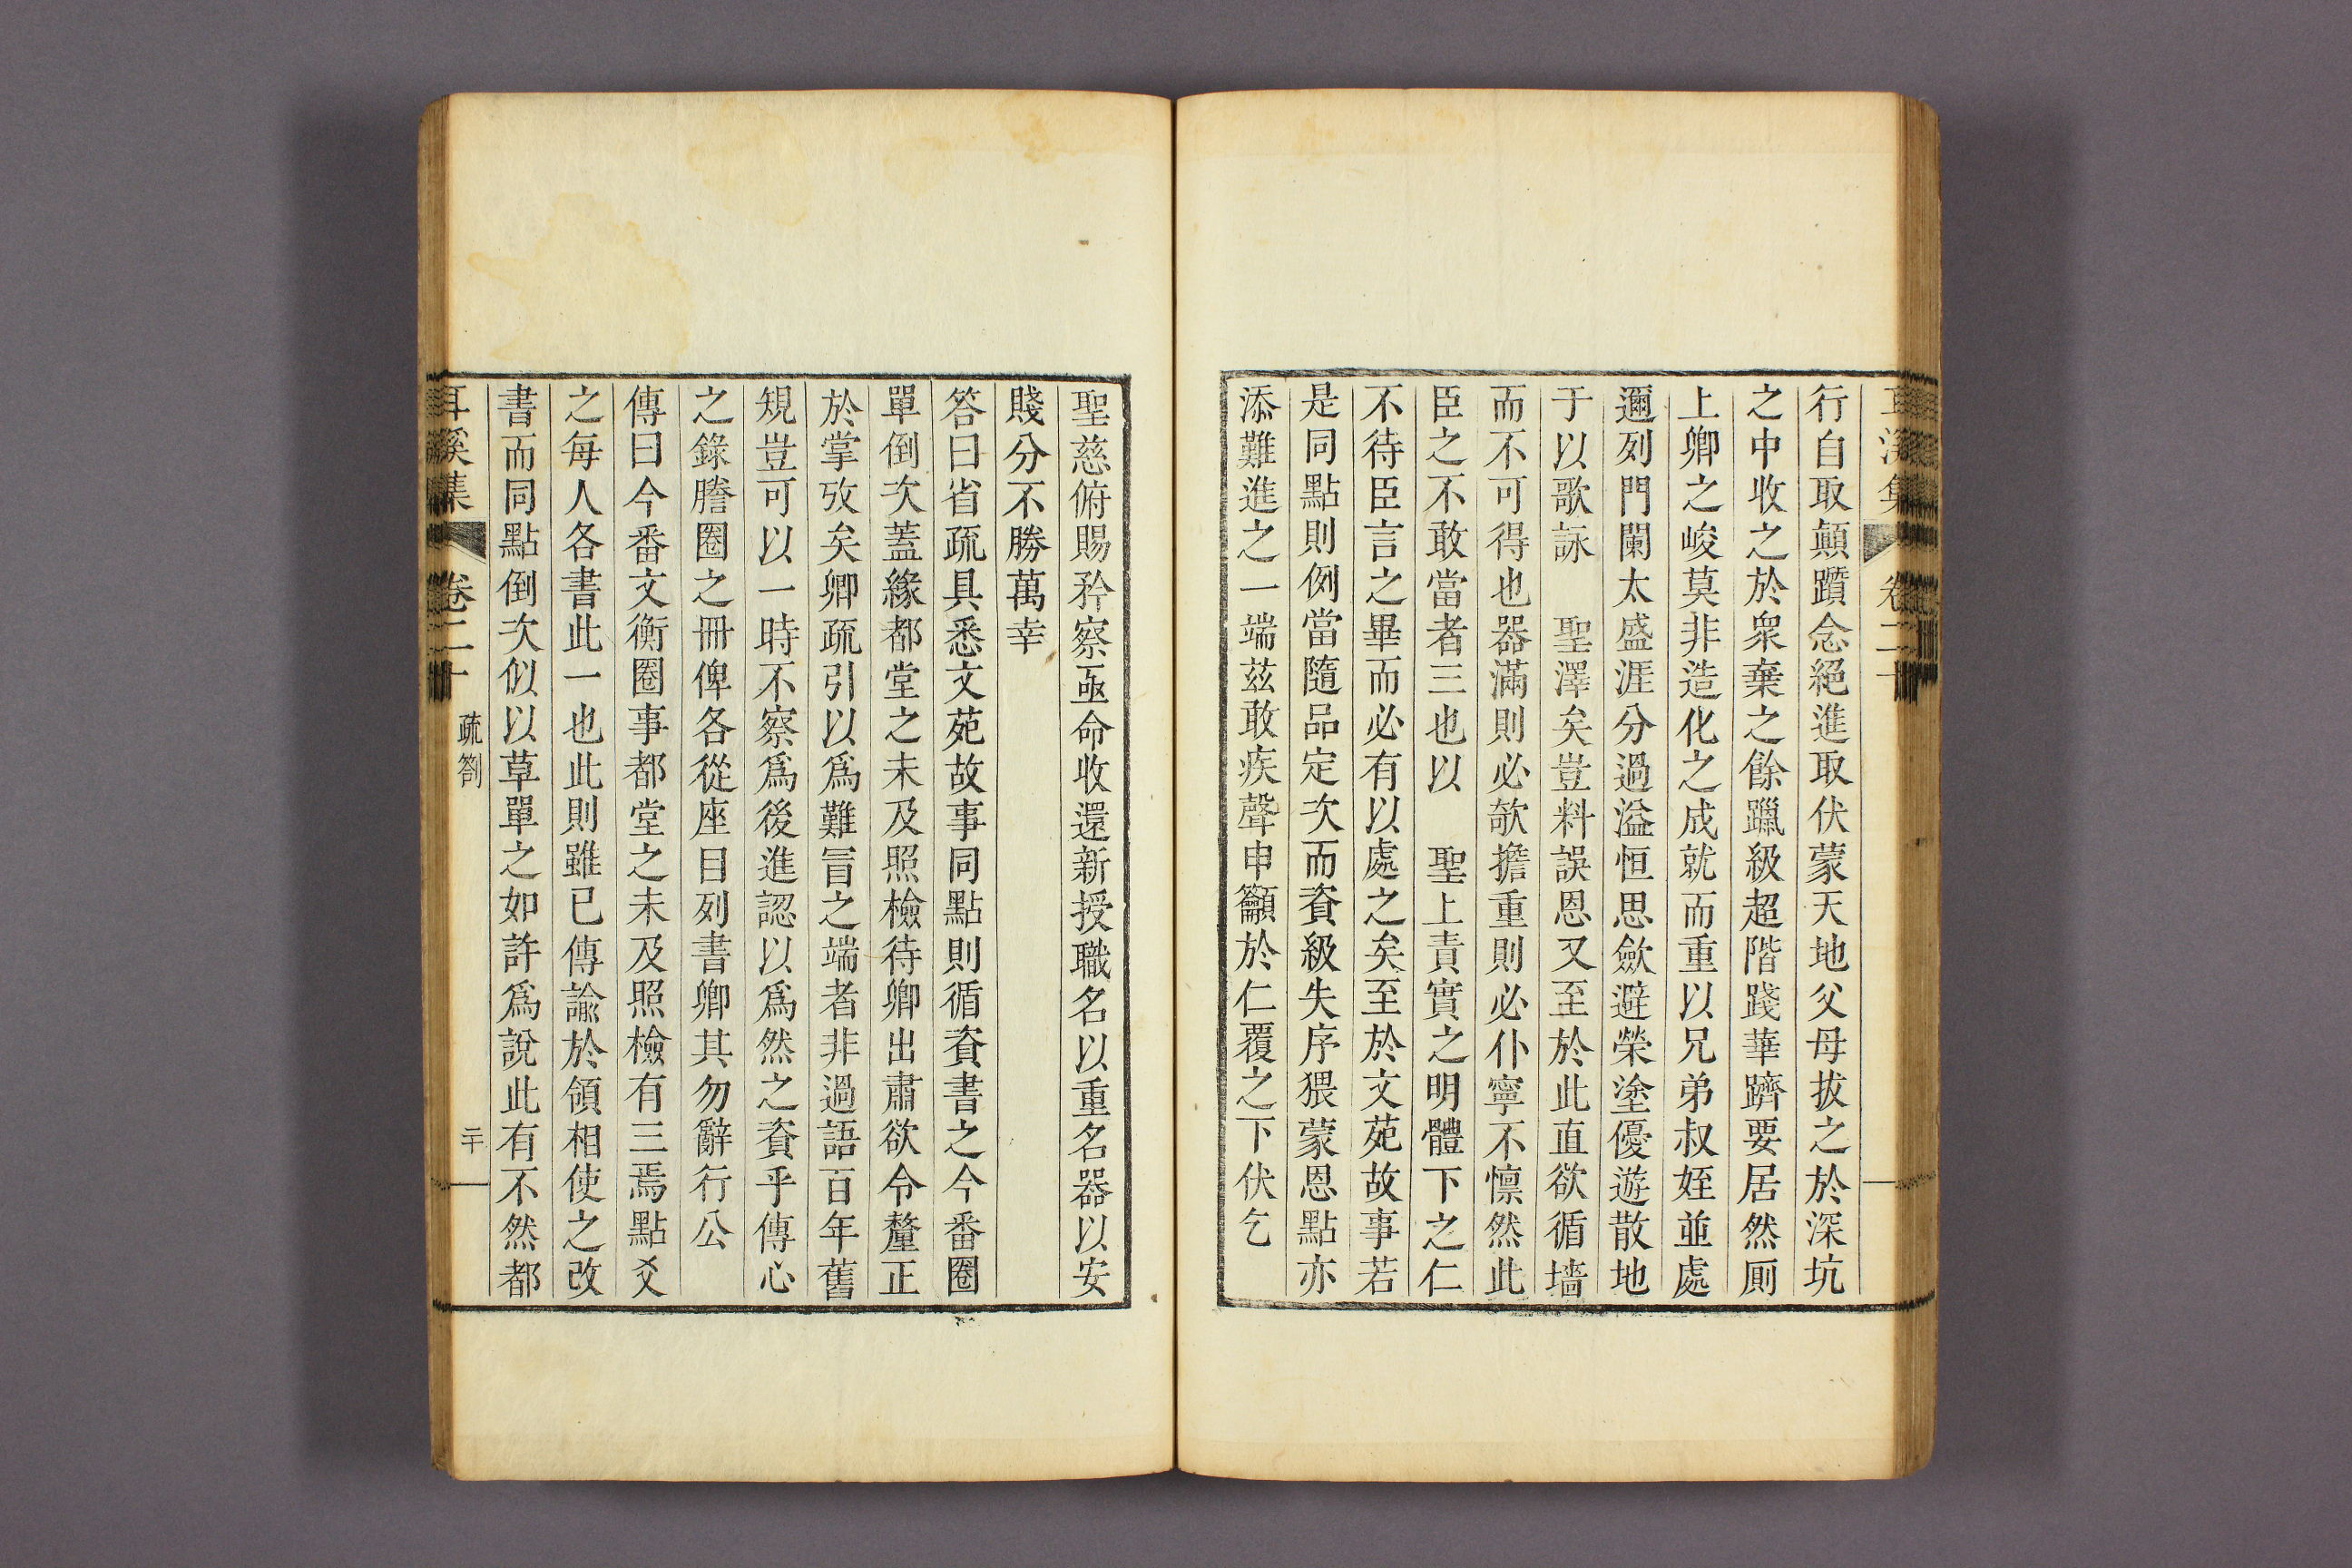 行自取顚躓念絕進取伏蒙天地父母拔之於深坑
之中收之於衆棄之餘躐級超階踐華躋要居然厠
上卿之峻莫非造化之成就而重以兄弟叔姪並處
邇列門闌太盛涯分過溢恒思歛避榮塗優遊散地
于以歌詠　聖澤矣豈料誤恩又至於此直欲循墻
而不可得也器滿則必欹擔重則必仆寧不懍然此
臣之不敢當者三也以　聖上責實之明體下之仁
不待臣言之畢而必有以處之矣至於文苑故事若
是同點則例當隨品定次而資級失序猥蒙恩點亦
添難進之一端玆敢疾聲申籲於仁覆之下伏乞
聖慈俯賜矜察亟命收還新授職名以重名器以安
賤分不勝萬幸
答曰省疏具悉文苑故事同點則循資書之今番圈
單倒次蓋緣都堂之未及照檢待卿出肅欲令釐正
於掌攷矣卿疏引以爲難冒之端者非過語百年舊
規豈可以一時不察爲後進認以爲然之資乎傳心
之錄謄圈之冊俾各從座目列書卿其勿辭行公
傳曰今番文衡圈事都堂之未及照檢有三焉點爻
之每人各書此一也此則雖已傳諭於領相使之改
書而同點倒次似以草單之如許爲說此有不然都
耳溪集　卷二十　疏箚　二十